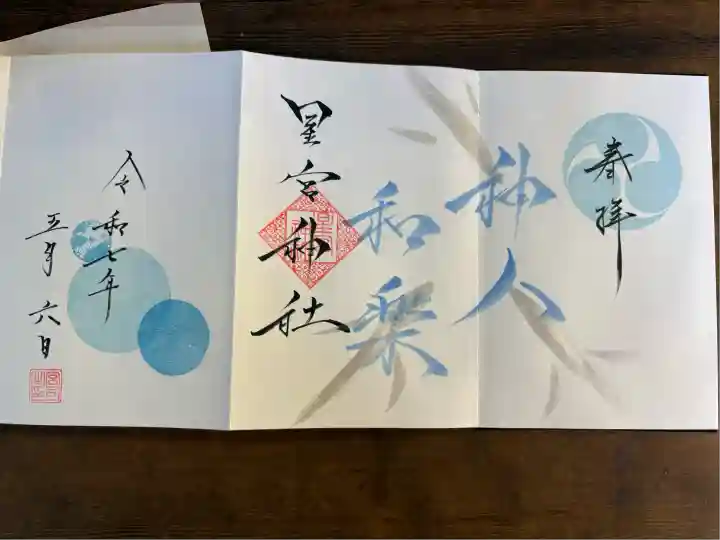 奉拝
神人
和楽
星宮神社
令和七年
五月六日